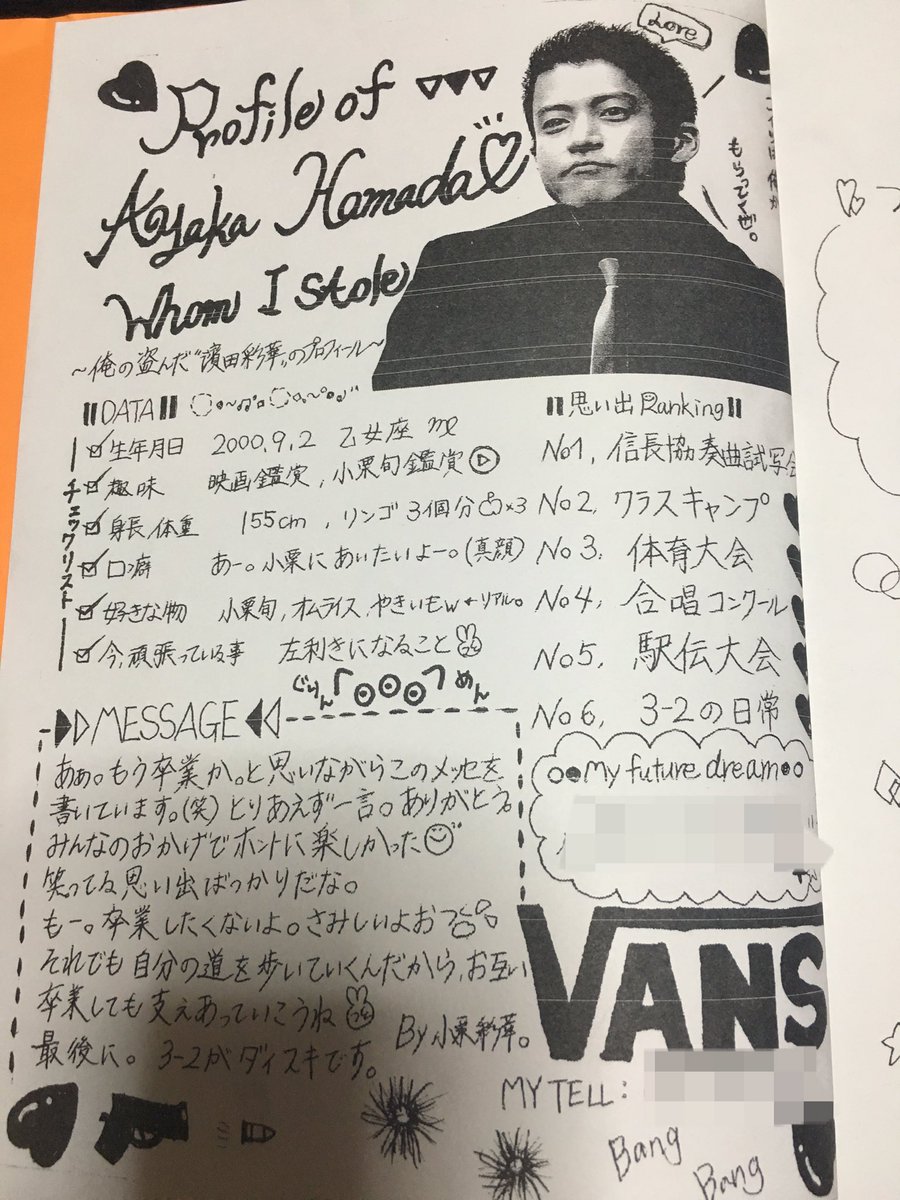 Love
Profile of
Ayaka Hamada
Whom I Stole
もらってくぜ。
～俺の盗んだ"濱田彩華"のプロフィール～
DATA
チェックリスト
生年月日 2000.9.2 乙女座 ♍
趣味 映画鑑賞，小栗旬鑑賞
身長，体重 155cm，リンゴ3個分×3
口癖 あー。小栗にあいたいよー。(真顔)
好きな物 小栗旬，オムライス，やきいもw←リアル。
今，頑張っている事 左利きになること
思い出Ranking
No1，信長協奏曲試写会
No2，クラスキャンプ
No3，体育大会
No4，合唱コンクール
No5，駅伝大会
No6，3-2の日常
ぐりーん めん
MESSAGE
あぁ。もう卒業か。と思いながらこのメッセを
書いています。(笑)とりあえず一言。ありがとう。
みんなのおかげでホントに楽しかった
笑ってる思い出ばっかりだな。
もー。卒業したくないよ。さみしいよお
それでも自分の道を歩いていくんだから，お互い
卒業しても支えあっていこうね
最後に。3-2がダイスキです。
By小栗彩華。
My future dream
VANS
MY TELL:
Bang
Bang